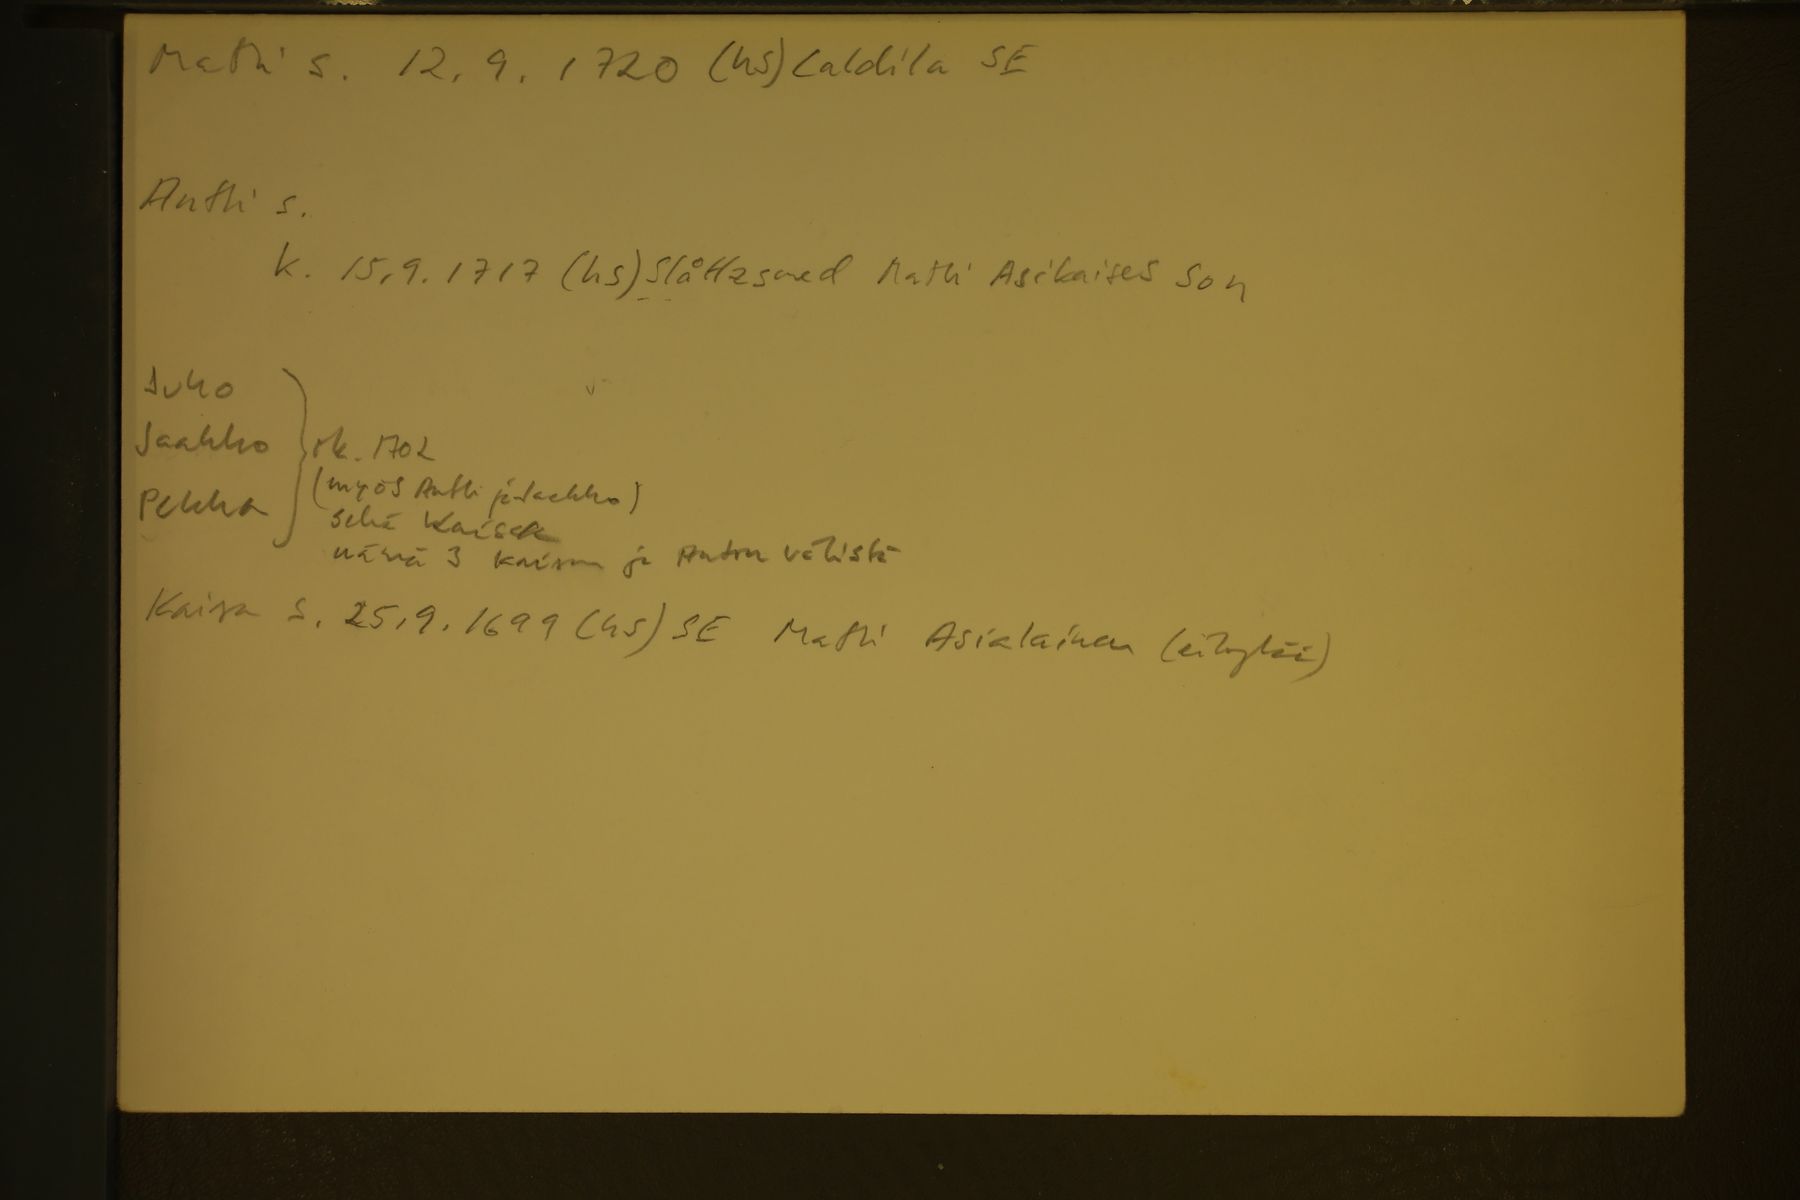 Matti s. 12.9.1720 (hs) Caldila SE
Antti s.
k. 15.9.1717 (hs) Slåttzsmed Matti Asikaises son
Juho
Jaakko } rk. 1702
(myös Antti ja Jaakko)
Pekka
sekä Kaisa
nämä 3 Kaisan ja Antin välistä
Kaisa s. 25.9.1699 (hs) SE Matti Asialainen